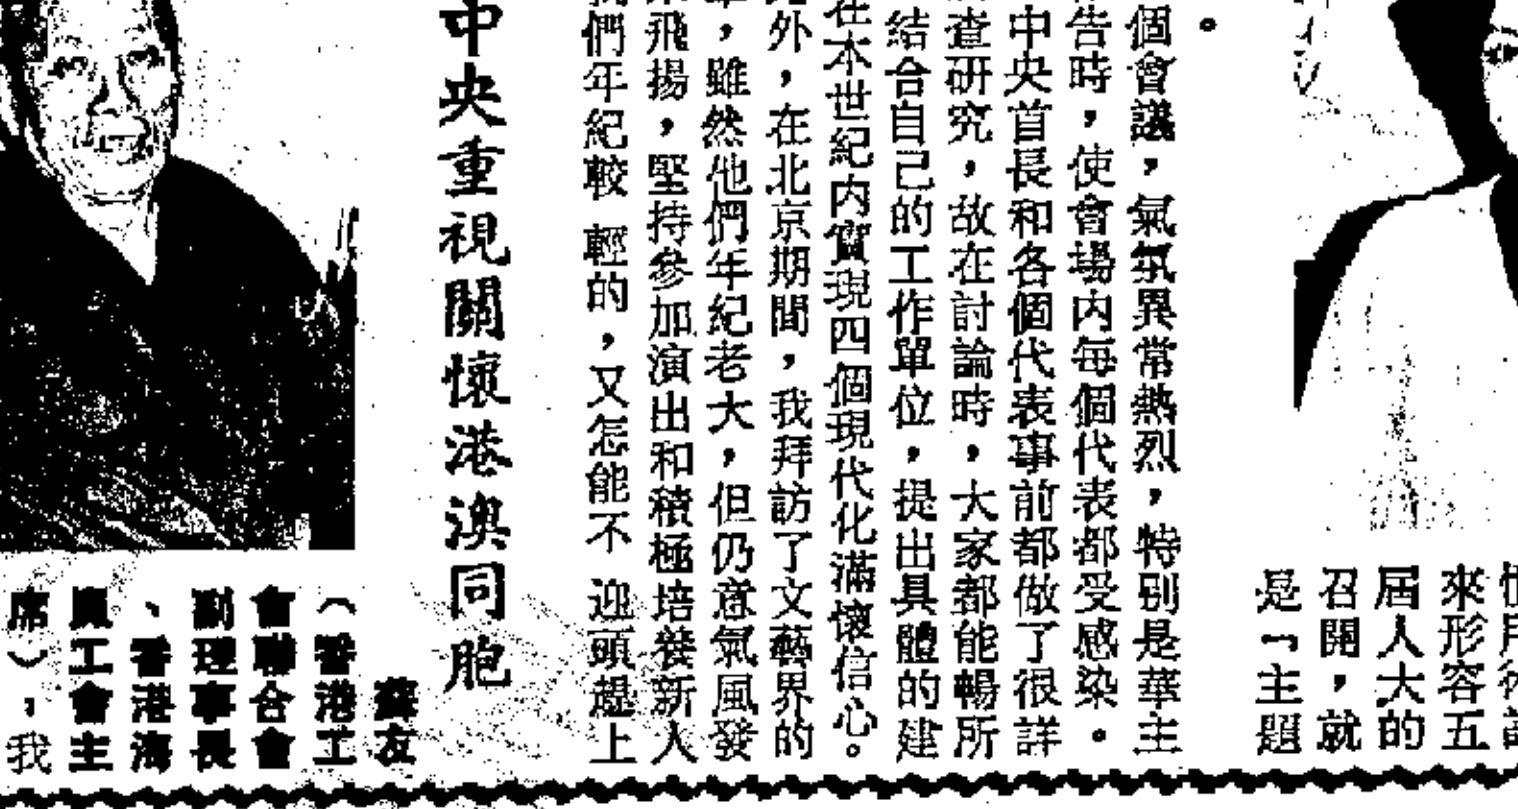 來形容五
屆人大的
召開，就
是「主題
。
個會議，氣氛異常熱烈，特别是華主
告時，使會場内每個代表都受感染。
中央首長和各個代表事前都做了很詳
查研究，故在討論時，大家都能暢所
結合自己的工作單位，提出具體的建
在本世紀内實現四個現代化滿懷信心。
外，在北京期間，我拜訪了文藝界的
，雖然他們年紀老大，但仍意氣風發
飛揚，堅持參加演出和積極培養新人
們年紀較輕的，又怎能不迎頭趕上
中央重視關懷港澳同胞
蘇友
（香港工
會聯合會
副理事長
、香港海
員工會主
席），我